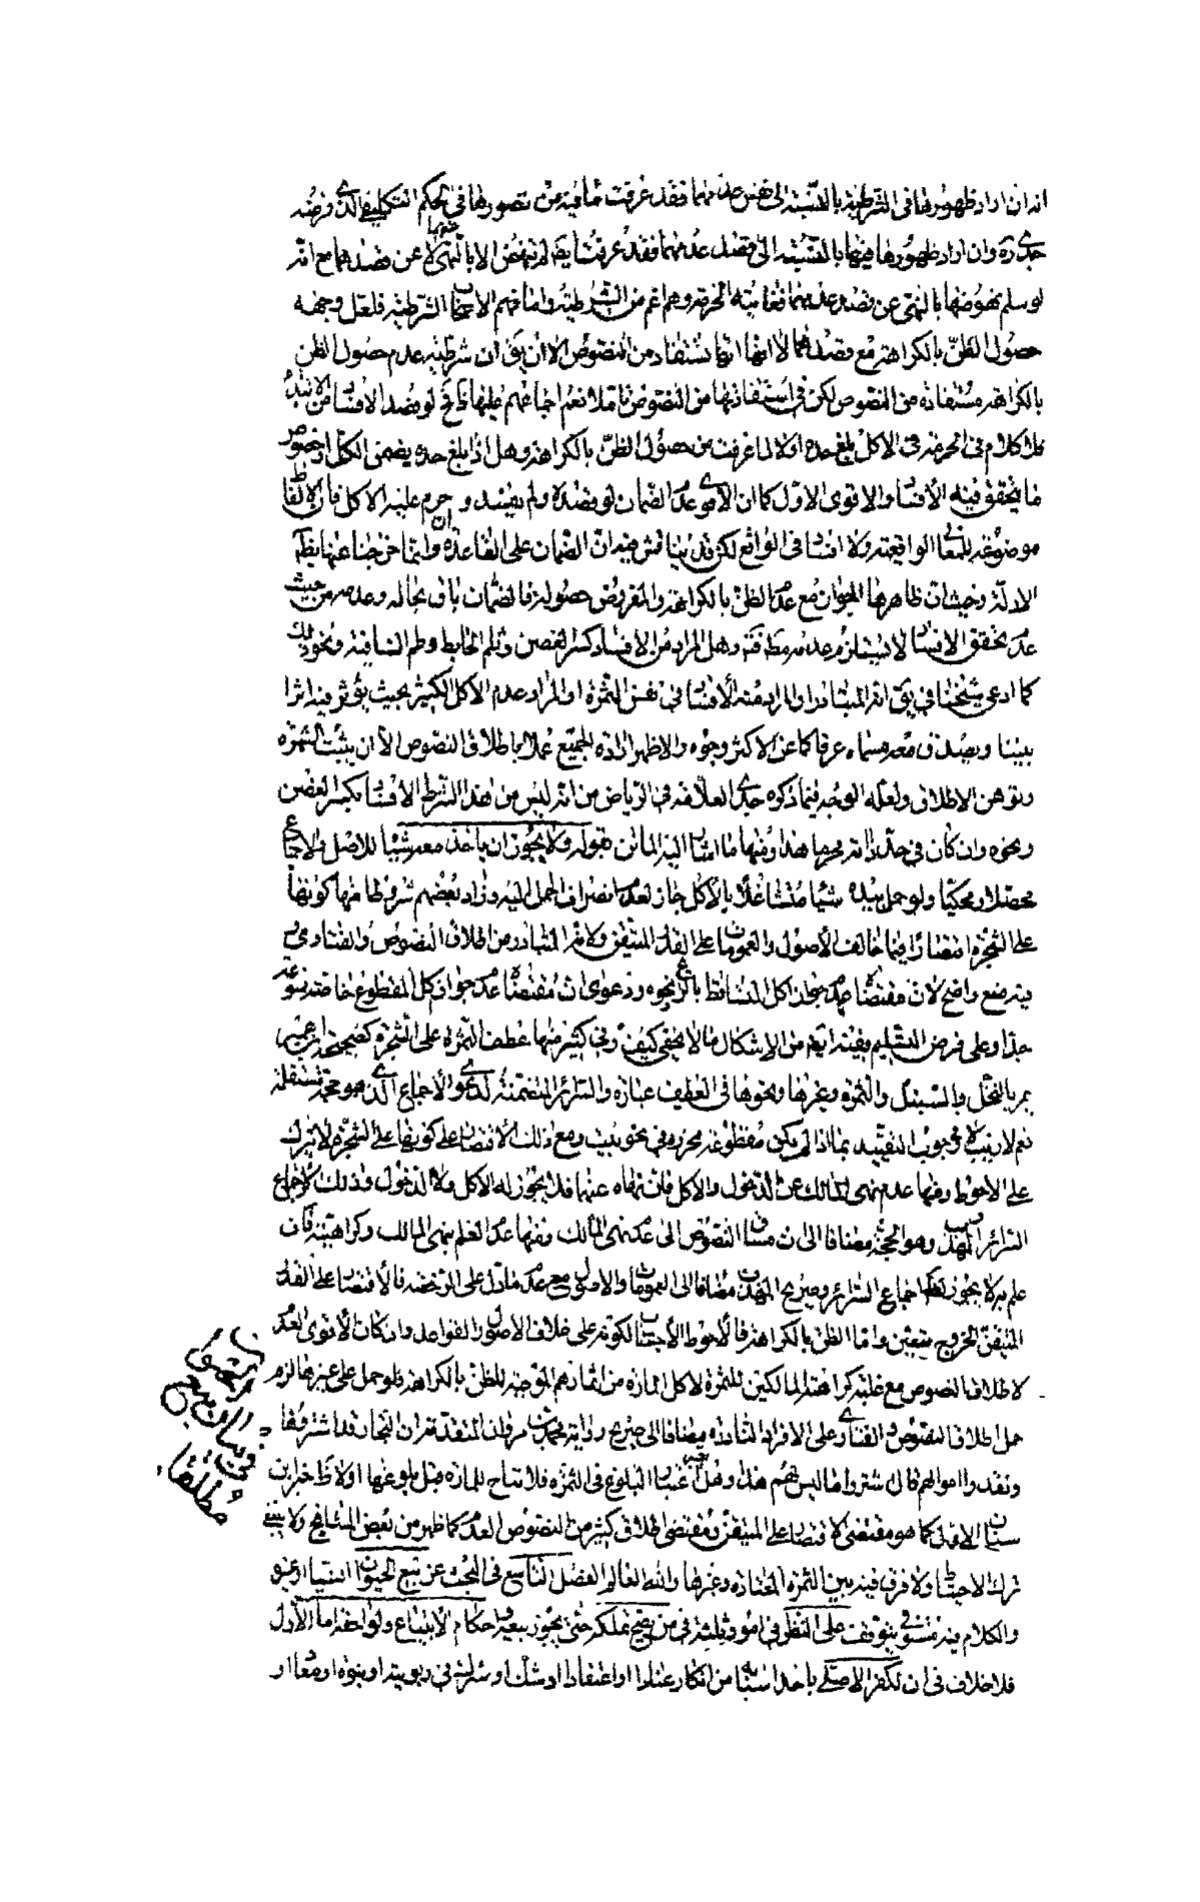 انه ان اراد ظهورها في الشرطية بالنسبة الى نفس عدمهما فقد عرفت ما فيه من تصورها في الحكم التكليفي الذي فرضه
جدي ره وان اراد ظهورها فيها بالنسبة الى قصد عدمهما فقد عرفت ايضا نهوض الا بالنهي لا عن قصدهما مع انه
لو سلم نهوضها بالنهي عن قصد عدمهما فغايته الحرمة وهي اعم من الشرطية واما فهم الاصحاب الشرطية فلعل وجهه
حصول الظن بالكراهة مع قصدهما لا انها تستفاد من النصوص الا ان يق ان شرطية عدم حصول الظن
بالكراهة مستفادة من النصوص لكن في استفادتها من النصوص تامل نعم اجماعهم عليها لو قصد الافساد من الابتداء
فلا كلام في الحرمة في الاكل بلغ حده اولا لما عرفت من حصول الظن بالكراهة وهل اذا بلغ حده يضمن الكل او خصوص
ما يتحقق فيه الافساد والاقوى الاول كما ان الاقوى عدم الضمان لو قصده ولم يفسد و حرم عليه الاكل فان الالفاظ
موضوعة للمعاني الواقعية ولا افساد في الواقع لكن قد يناقش فيه ان الضمان على القاعدة وانما خرجنا عنها بظ
الادلة وحيث ان ظاهرها الجواز مع عدم الظن بالكراهة والمفروض حصوله فالضمان باق بحاله وعدمه من حيث
عدم تحقق الافساد لا يستلزم عدمه مط فت وهل المراد من الافساد كسر الغصن وثلم الحايط وطم الساقية ونحو ذلك
كما ادعى شيخنا في يق انه المتبادر او المراد منه الافساد في نفس الثمرة او المراد عدم الاكل الكثير بحيث يؤثر فيه اثرا
بينا ويصدق معه مسماه عرفا كما عن الاكثر وجوه والاظهر ارادة الجميع عملا باطلاق النصوص الا ان يثبت الشهرة
وتوهن الاطلاق ولعله الوجه فيما ذكره جدي العلامة في الرياض من انه ليس من هذا الشرط الافساد بكسر الغصن
ونحوه وان كان في حد ذاته محرما هذا ومنها ما اشار اليه الماتن بقوله ولا يجوز ان ياخذ معه شيئا للاصل والاجماع
محصلا ومحكيا ولو حمل بيده شيئا متشاغلا بالاكل جاز لعدم انصراف الحمل اليه وزاد بعضهم شروطا منها كونها
على الشجرة اقتصارا فيما خالف الاصول والعمومات على القدر المتيقن ولانه المتبادر من اطلاق النصوص والفتاوى
فيه منع واضح لان مقتضاه عدم جواز اكل المتساقط بالريح ونحوه ودعوى ان مقتضاه عدم جواز كل المقطوع خاصة ممنوعة
جدا وعلى فرض التسليم ففيه ايضا من الاشكال ما لا يخفى كيف وفي كثير منها عطف الثمرة على الشجرة كصحيحة ابن ابي عمير
يمر بالنخل والسنبل والثمرة وغيرها ونحوها في العطف عبارة والسرائر المتضمنة لدعوى الاجماع الذي هو حجة مستقلة
نعم لا ريب في وجوب التقييد بما اذا لم يكن مقطوعة محرزة في نحو بيت ومع ذلك الاقتصار على كونها على الشجرة لا يترك
على الاحوط ومنها عدم نهي المالك عن الدخول والاكل فان نهاه عنهما فلا يجوز له الاكل ولا الدخول وذلك للاجماع
السرائر المهذب وهو الحجة مضافا الى ان مساق النصوص الى عدم نهي المالك ومنها عدم العلم بنهي المالك وكراهته فان
علم به لا يجوز لظ اجماع السرائر وصريح المهذب مضافا الى العمومات والاصول مع عدم ما دل على الرخصة فالاقتصار على القدر
المتيقن الخروج متعين واما الظن بالكراهة فالاحوط الاجتناب لكونه على خلاف الاصول والقواعد وان كان الاقوى العدم
لاطلاق النصوص مع غلبة كراهة المالكين للثمرة لاكل المارة من اثمارهم الموجبة للظن بالكراهة فلو حمل على غيرها لزم
حمل اطلاق النصوص والفتاوى على الافراد النادرة مضافا الى صريح رواية محمد بن مروان المتقدمة ان التجار قد اشتروها
ونقدوا اموالهم قال اشتروا ما ليس لهم هذا وهل يعتبر البلوغ في الثمرة فلا تباح للمارة قبل بلوغها اولا ظ خبر ابن
سنان الاول كما هو مقتضى الاقتصار على المتيقن ومقتضى اطلاق كثير من النصوص العدم كما ظهر من بعض المشايخ ولا ينبغي
ترك الاحتياط ولا فرق فيه بين الثمرة المعتادة وغيرها والله العالم الفصل التاسع في البحث عن بيع الحيوان انسيا او غيره
والكلام فيه مستوفى يتوقف على النظر في امور ثلثة في من يصح تملكه حتى يجوز بيعه واحكام الابتياع ولواحقه اما الاول
فلا خلاف في ان الكفر الاصلي باحد اسبابه من انكار عنادا او اعتقادا او شك او شرك في ربوبية او نبوة او معاد او